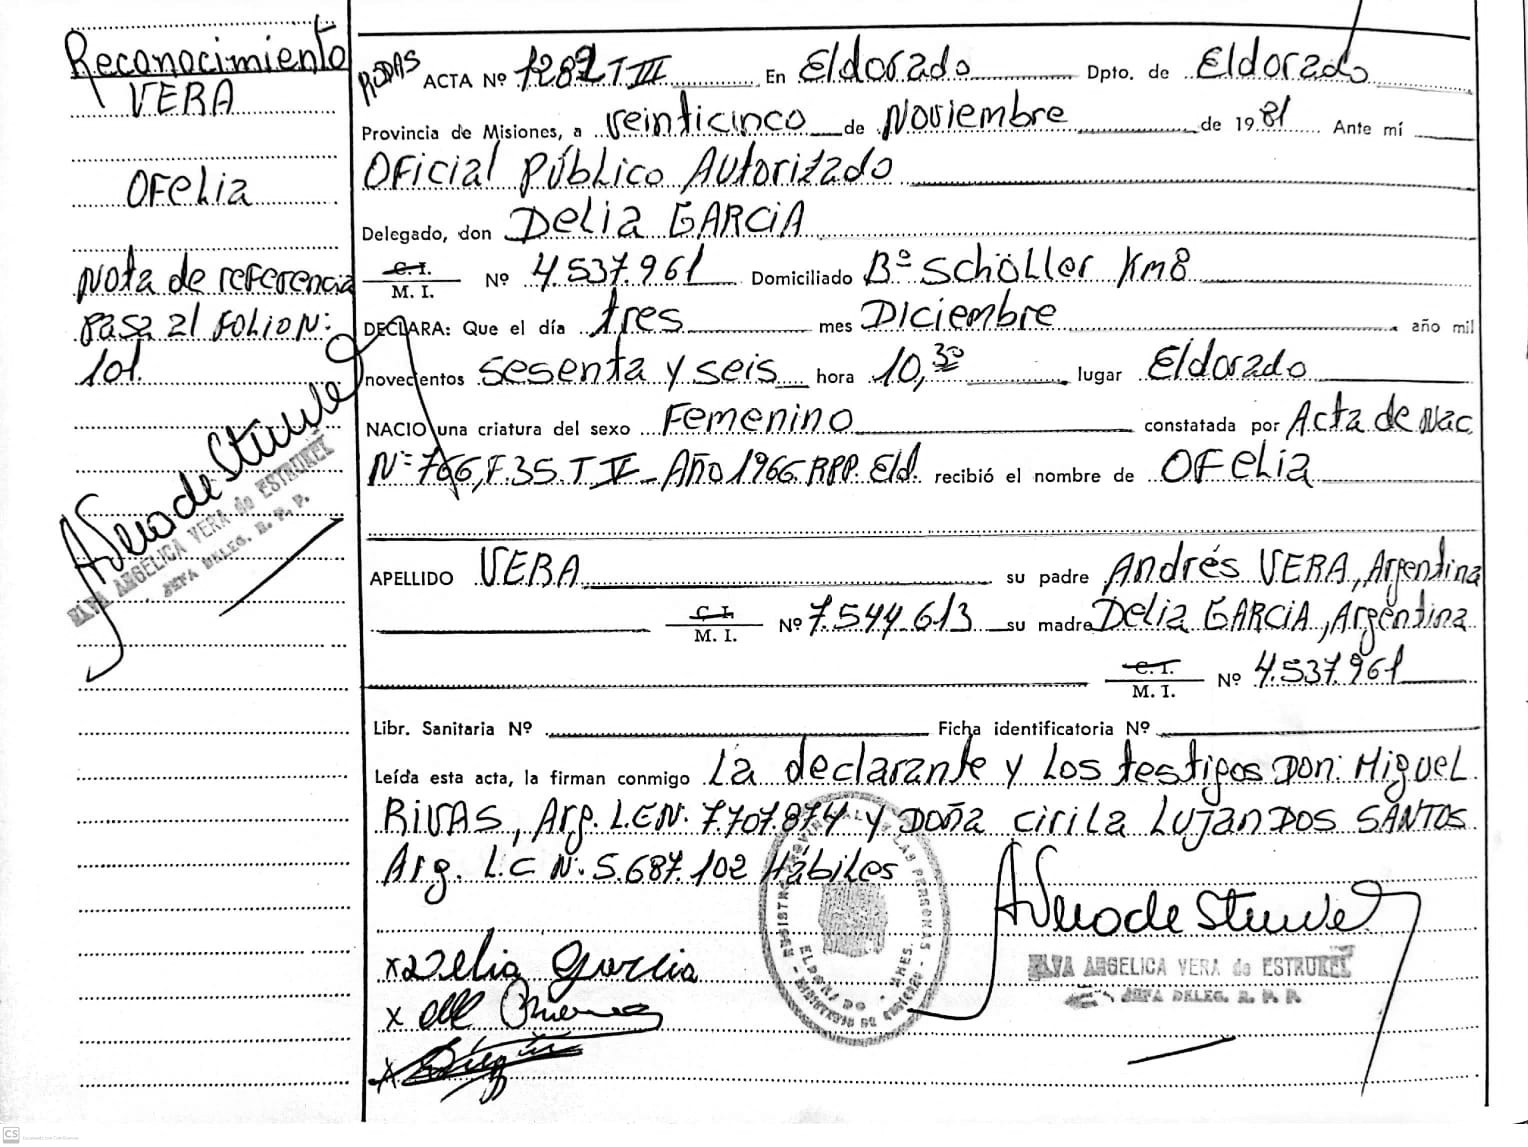 Reconocimiento
VERA
OFELia
Nota de referencia
pasa al FOLIO N:
101.
RODAS ACTA Nº 1282 T III En Eldorado Dpto. de Eldorado
Provincia de Misiones, a veinticinco de Noviembre de 1981 Ante mí
OFicial Público Autorizado
Delegado, don Delia GARCIA
C. I.
M. I. Nº 4.537.961 Domiciliado Bº Schöller Km 8
DECLARA: Que el día tres mes Diciembre año mil
novecientos sesenta y seis hora 10,30 lugar Eldorado
NACIO una criatura del sexo Femenino constatada por Acta de Nac
Nº 766, F. 35. T IV - Año 1966 RPP. Eld. recibió el nombre de OFELia
APELLIDO VERA su padre Andrés VERA, Argentina
C. I.
M. I. Nº 7.544.613 su madre Delia GARCIA, Argentina
C. I.
M. I. Nº 4.537.961
Libr. Sanitaria Nº Ficha identificatoria Nº
Leída esta acta, la firman conmigo La declarante y Los testigos Don: Miguel
RIVAS, Arg. L.E N: 7.707.874 y Doña Cirila Lujan DOS SANTOS
Arg. L.C N: 5.687.102 Hábiles
x Delia Garcia
x
x
ELVA ANGELICA VERA de ESTRUKEL
JEFA DELEG. R. P. P.
ELVA ANGELICA VERA de ESTRUKEL
JEFA DELEG. R. P. P.
CS